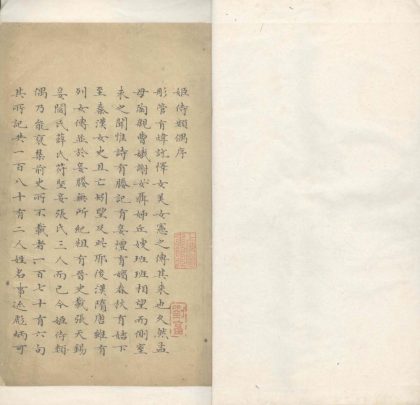 姬侍類偶序
彤管有煒說懌女美女憲之傳其來也久然孟
母陶親曹娥謝女齊姊丘嫂班班相望而側室
未之聞惟詩有媵記有妾禮有嬪春秋有嬙下
至秦漢女史且亡劉璧及終耶後漢隋唐雖有
列女傳並於妾媵無所紀祖有晉史載張天錫
妾閻氏薛氏苻堅妾張氏三人而已今姬侍類
偶乃能裒集前史所不載者一百七十有六句
其所記共一百八十有二人姓名事迹彪炳可